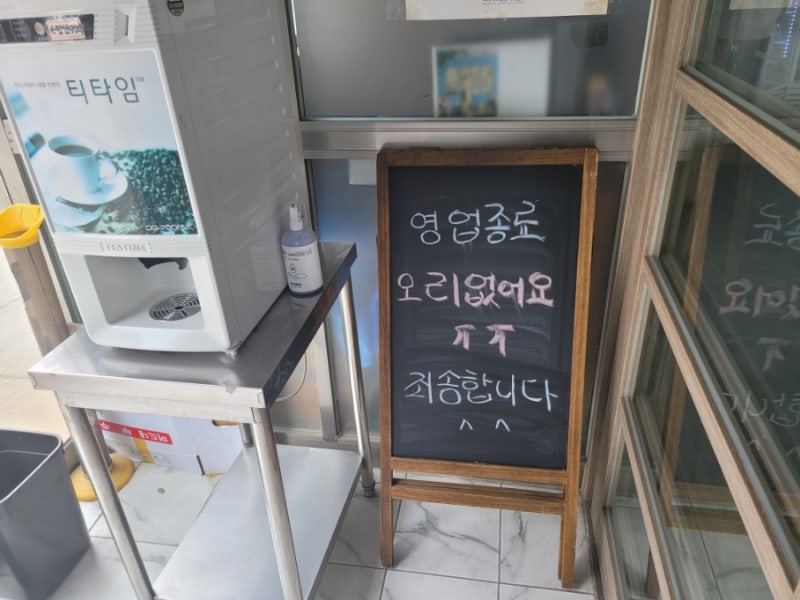 티타임™
TEATIME
영업종료
오리없어요
ㅠㅠ
죄송합니다
^ ^